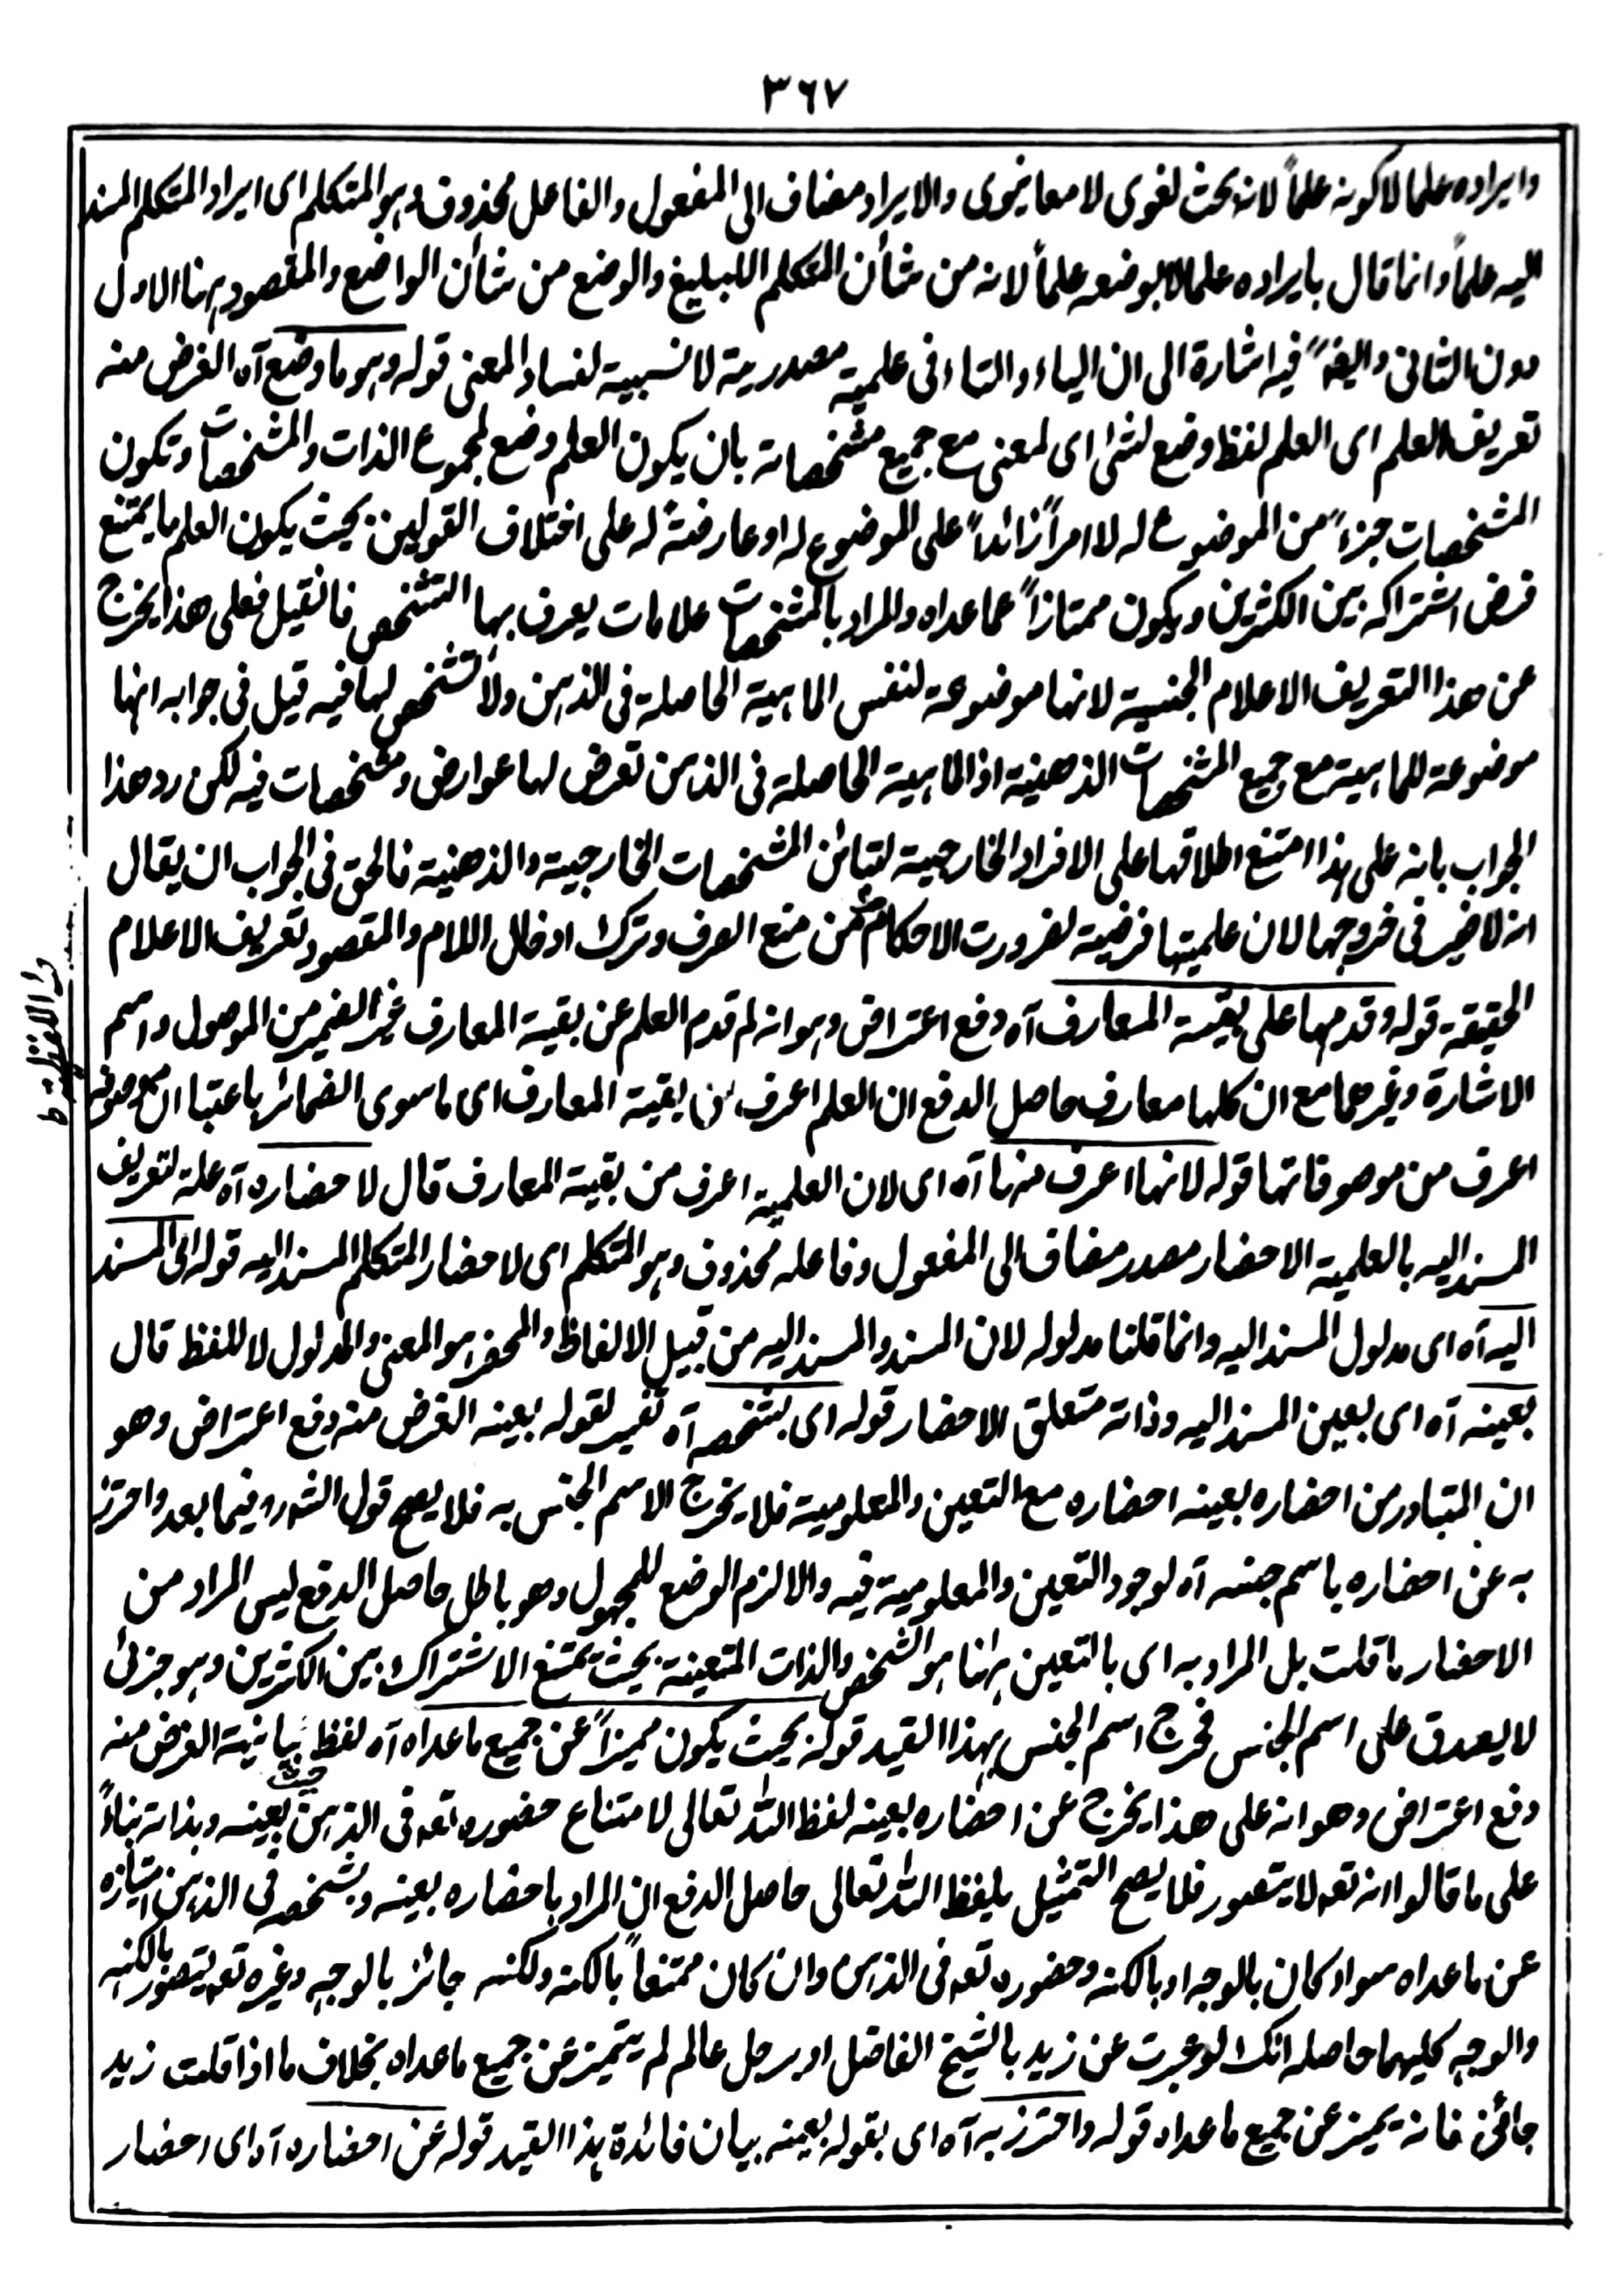 ٣٦٧
وايراده علما لا كونه علماً لانه بحث لغوى لا معانيوى والايراد مضاف الى المفعول والفاعل محذوف وهو المتكلم اى ايراد المتكلم المسند
اليه علماً وانما قال بايراده علما لا بوضعه علماً لانه من شأن المتكلم البليغ والوضع من شأن الواضع والمقصود ههنا الاول
دون الثانى وايضاً فيه اشارة الى ان الياء والتاء فى علمية مصدرية لا نسبية لفساد المعنى قوله وهو ما وضع آه الغرض منه
تعريف العلم اى العلم لفظ وضع لشئ اى لمعنى مع جميع مشخصاته بان يكون العلم وضع لمجموع الذات والمشخصات وتكون
المشخصات جزءً من الموضوع له لا امراً زائداً على الموضوع له او عارضةً له على اختلاف القولين بحيث يكون العلم ما يمتنع
فرض اشتراكه بين الكثيرين ويكون ممتازاً عما عداه والمراد بالمشخصات علامات يعرف بها التشخص فانقيل فعلى هذا يخرج
عن هذا التعريف الاعلام الجنسية لانها موضوعة لنفس الماهية الحاصلة فى الذهن ولا تشخص لها فيه قيل فى جوابه انها
موضوعة للماهية مع جميع المشخصات الذهنية اذ الماهية الحاصلة فى الذهن تعرض لها عوارض ومشخصات فيه لكن رد هذا
الجواب بانه على هذا امتنع اطلاقها على الافراد الخارجية لتبائن المشخصات الخارجية والذهنية فالحق فى الجواب ان يقال
انه لا ضير فى خروجها لان علميتها فرضية لضرورت الاحكام من منع الصرف وترك ادخال اللام والمقصود تعريف الاعلام
الحقيقة قوله وقدمها على بقية المعارف آه دفع اعتراض وهو انه لم قدم العلم عن بقية المعارف غير الضمير من الموصول واسم
الاشارة وغيرهما مع ان كلها معارف حاصل الدفع ان العلم اعرف من بقية المعارف اى ما سوى الضمائر باعتبار ان موصوفه
اعرف من موصوفاتها قوله لانها اعرف منها آه اى لان العلمية اعرف من بقية المعارف قال لاحضاره آه علة لتعريف
المسند اليه بالعلمية الاحضار مصدر مضاف الى المفعول وفاعله محذوف وهو المتكلم اى لاحضار المتكلم المسند اليه قوله اى المسند
اليه آه اى مدلول المسند اليه وانما قلنا مدلوله لان المسند والمسند اليه من قبيل الالفاظ والمحضر هو المعنى والمدلول لا للفظ قال
بعينه آه اى بعين المسند اليه وذاته متعلق الاحضار قوله اى بشخصه آه تفسير لقوله بعينه الغرض منه دفع اعتراض وهو
ان المتبادر من احضاره بعينه احضاره مع التعين والمعلومية فلا يخرج الاسم الجنس به فلا يصح قول الشرح فيما بعد واحترز
به عن احضاره باسم جنسه آه لوجود التعين والمعلومية فيه والا لزم الوضع للمجهول وهو باطل حاصل الدفع ليس المراد من
الاحضار ما قلت بل المراد به اى بالتعين ههنا هو الشخص والذات المتعينة بحيث يمتنع الاشتراك بين الكثيرين وهو جزئى
لا يصدق على اسم الجنس فخرج اسم الجنس بهذا القيد قوله بحيث يكون مميزاً عن جميع ما عداه آه لفظ حيث بيانية الغرض منه
دفع اعتراض وهو انه على هذا يخرج عن احضاره بعينه لفظ الله تعالى لامتناع حضوره تعه فى الذهن بعينه وبذاته بناءً
على ما قالوا انه تعه لا يتصور فلا يصح التمثيل بلفظ الله تعالى حاصل الدفع ان المراد باحضاره بعينه وبشخصه فى الذهن امتيازه
عن ما عداه سواء كان بالوجه او بالكنه وحضوره تعه فى الذهن وان كان ممتنعاً بالكنه ولكنه جائز بالوجه وغيره تعه يتصور بالكنه
والوجه كليهما حاصله انك لو عبرت عن زيد بالشيخ الفاضل او برجل عالم لم يتميز عن جميع ما عداه بخلاف ما اذا قلت زيد
جائنى فانه يميز عن جميع ما عداه قوله واحترز به آه اى بقوله بعينه بيان فائدة هذا القيد قوله عن احضاره آه اى احضار